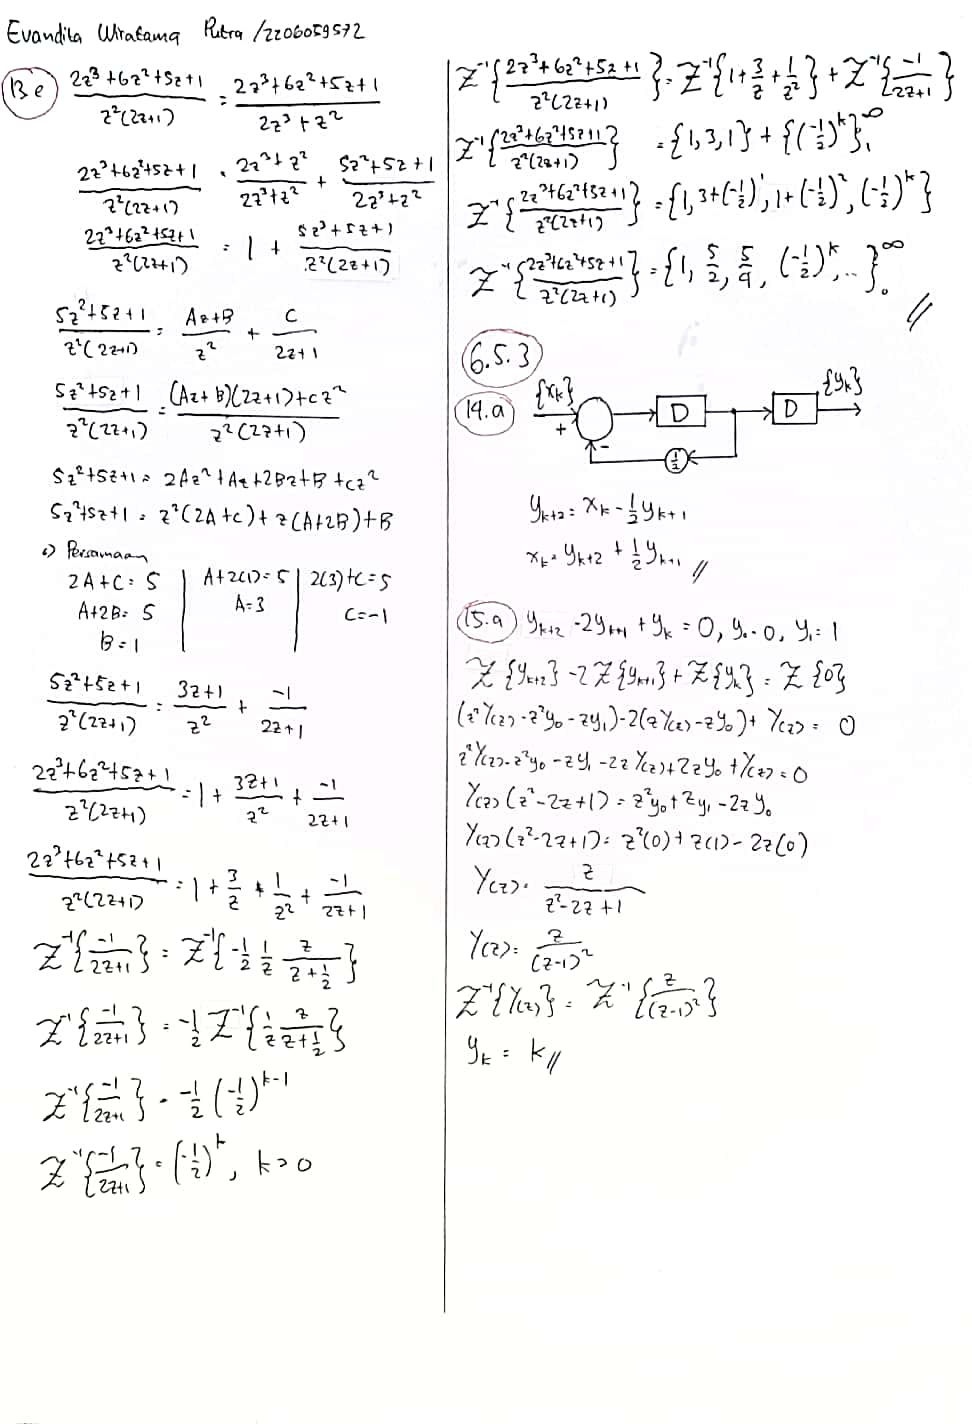 Evandita Wiratama Putra /2206059572
13 e (2z³+6z²+5z+1)/(z²(2z+1)) = (2z³+6z²+5z+1)/(2z³+z²)
(2z³+6z²+5z+1)/(z²(2z+1)) = (2z³+z²)/(2z³+z²) + (5z²+5z+1)/(2z³+z²)
(2z³+6z²+5z+1)/(z²(2z+1)) = 1 + (5z³+5z+1)/(z²(2z+1))
(5z²+5z+1)/(z²(2z+1)) = (Az+B)/z² + C/(2z+1)
(5z²+5z+1)/(z²(2z+1)) = ((Az+B)(2z+1)+Cz²)/(z²(2z+1))
5z²+5z+1 = 2Az²+Az+2Bz+B+Cz²
5z²+5z+1 = z²(2A+C)+z(A+2B)+B
•) Persamaan
2A+C = 5 | A+2(1) = 5 | 2(3)+C = 5
A+2B = 5 | A=3 | C=-1
B=1
(5z²+5z+1)/(z²(2z+1)) = (3z+1)/z² + -1/(2z+1)
(2z³+6z²+5z+1)/(z²(2z+1)) = 1 + (3z+1)/z² + -1/(2z+1)
(2z³+6z²+5z+1)/(z²(2z+1)) = 1 + 3/z + 1/z² + -1/(2z+1)
Z⁻¹{-1/(2z+1)} = Z⁻¹{-1/2 1/z z/(z+1/2)}
Z⁻¹{-1/(2z+1)} = -1/2 Z⁻¹{1/z z/(z+1/2)}
Z⁻¹{-1/(2z+1)} = -1/2 (-1/2)^(k-1)
Z⁻¹{-1/(2z+1)} = (-1/2)^k, k>0
Z⁻¹{(2z³+6z²+5z+1)/(z²(2z+1))} = Z⁻¹{1+3/z+1/z²} + Z⁻¹{-1/(2z+1)}
Z⁻¹{(2z³+6z²+5z+1)/(z²(2z+1))} = {1,3,1} + {(-1/2)^k}₁^∞
Z⁻¹{(2z³+6z²+5z+1)/(z²(2z+1))} = {1, 3+(-1/2)¹, 1+(-1/2)², (-1/2)^k}
Z⁻¹{(2z³+6z²+5z+1)/(z²(2z+1))} = {1, 5/2, 5/4, (-1/2)^k, ..}₀^∞ //
6.5.3
14.a {xₖ} + - D D {yₖ} 1/2
yₖ₊₂ = xₖ - 1/2 yₖ₊₁
xₖ = yₖ₊₂ + 1/2 yₖ₊₁ //
15.a yₖ₊₂ - 2yₖ₊₁ + yₖ = 0, y₀ = 0, y₁ = 1
Z{yₖ₊₂} - 2Z{yₖ₊₁} + Z{yₖ} = Z{0}
(z²Y(z) - z²y₀ - zy₁) - 2(zY(z) - zy₀) + Y(z) = 0
z²Y(z) - z²y₀ - zy₁ - 2zY(z) + 2zy₀ + Y(z) = 0
Y(z)(z²-2z+1) = z²y₀ + zy₁ - 2zy₀
Y(z)(z²-2z+1) = z²(0) + z(1) - 2z(0)
Y(z) = z/(z²-2z+1)
Y(z) = z/(z-1)²
Z⁻¹{Y(z)} = Z⁻¹{z/(z-1)²}
yₖ = k //